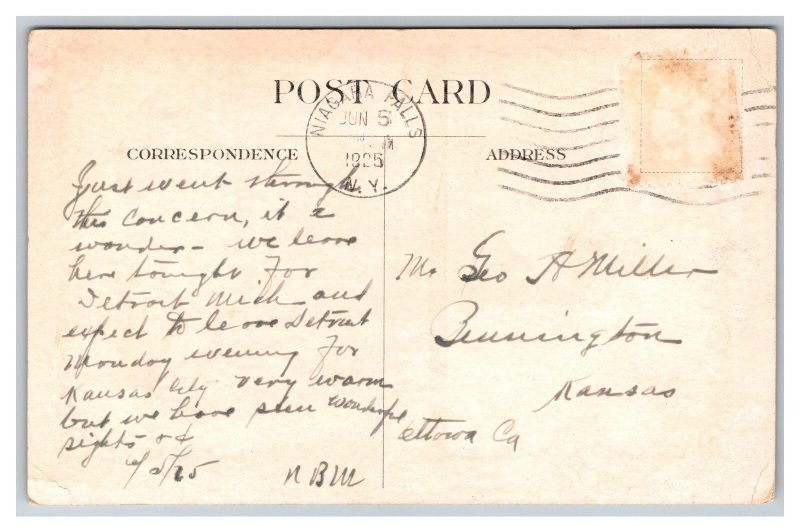 POST CARD
NIAGARA FALLS
JUN 5
M
1925
N.Y.
CORRESPONDENCE
ADDRESS
Just went through
this concern, it a
wonder - we leave
here tonight for
Detroit Mich and
expect to leave Detroit
Monday evening for
Kansas City very warm
but we have seen wonderful
sights
6/5/25 NBM
Mr Geo A Miller
Bennington
Kansas
Ottowa Co